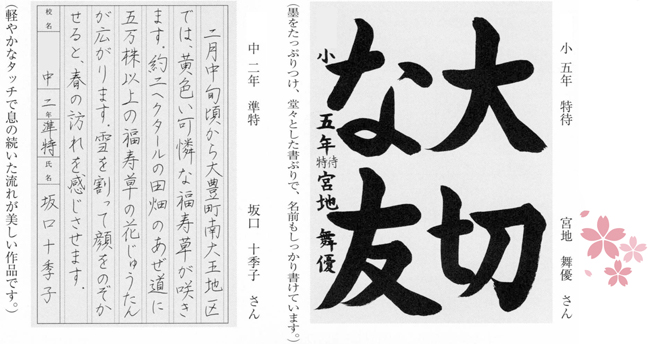 小 五年 特待 宮地 舞優 さん
大切
な友
小 五年 特待 宮地 舞優
(墨をたっぷりつけ、堂々とした書ぶりで、名前もしっかり書けています。)
中 二年 準特 坂口 十季子 さん
二月中旬頃から大豊町南大王地区
では、黄色い可憐な福寿草が咲き
ます。約二ヘクタールの田畑のあぜ道に
五万株以上の福寿草の花じゅうたん
が広がります。雪を割って顔をのぞか
せると、春の訪れを感じさせます。
校名 中 二年 準特 氏名 坂口十季子
(軽やかなタッチで息の続いた流れが美しい作品です。)